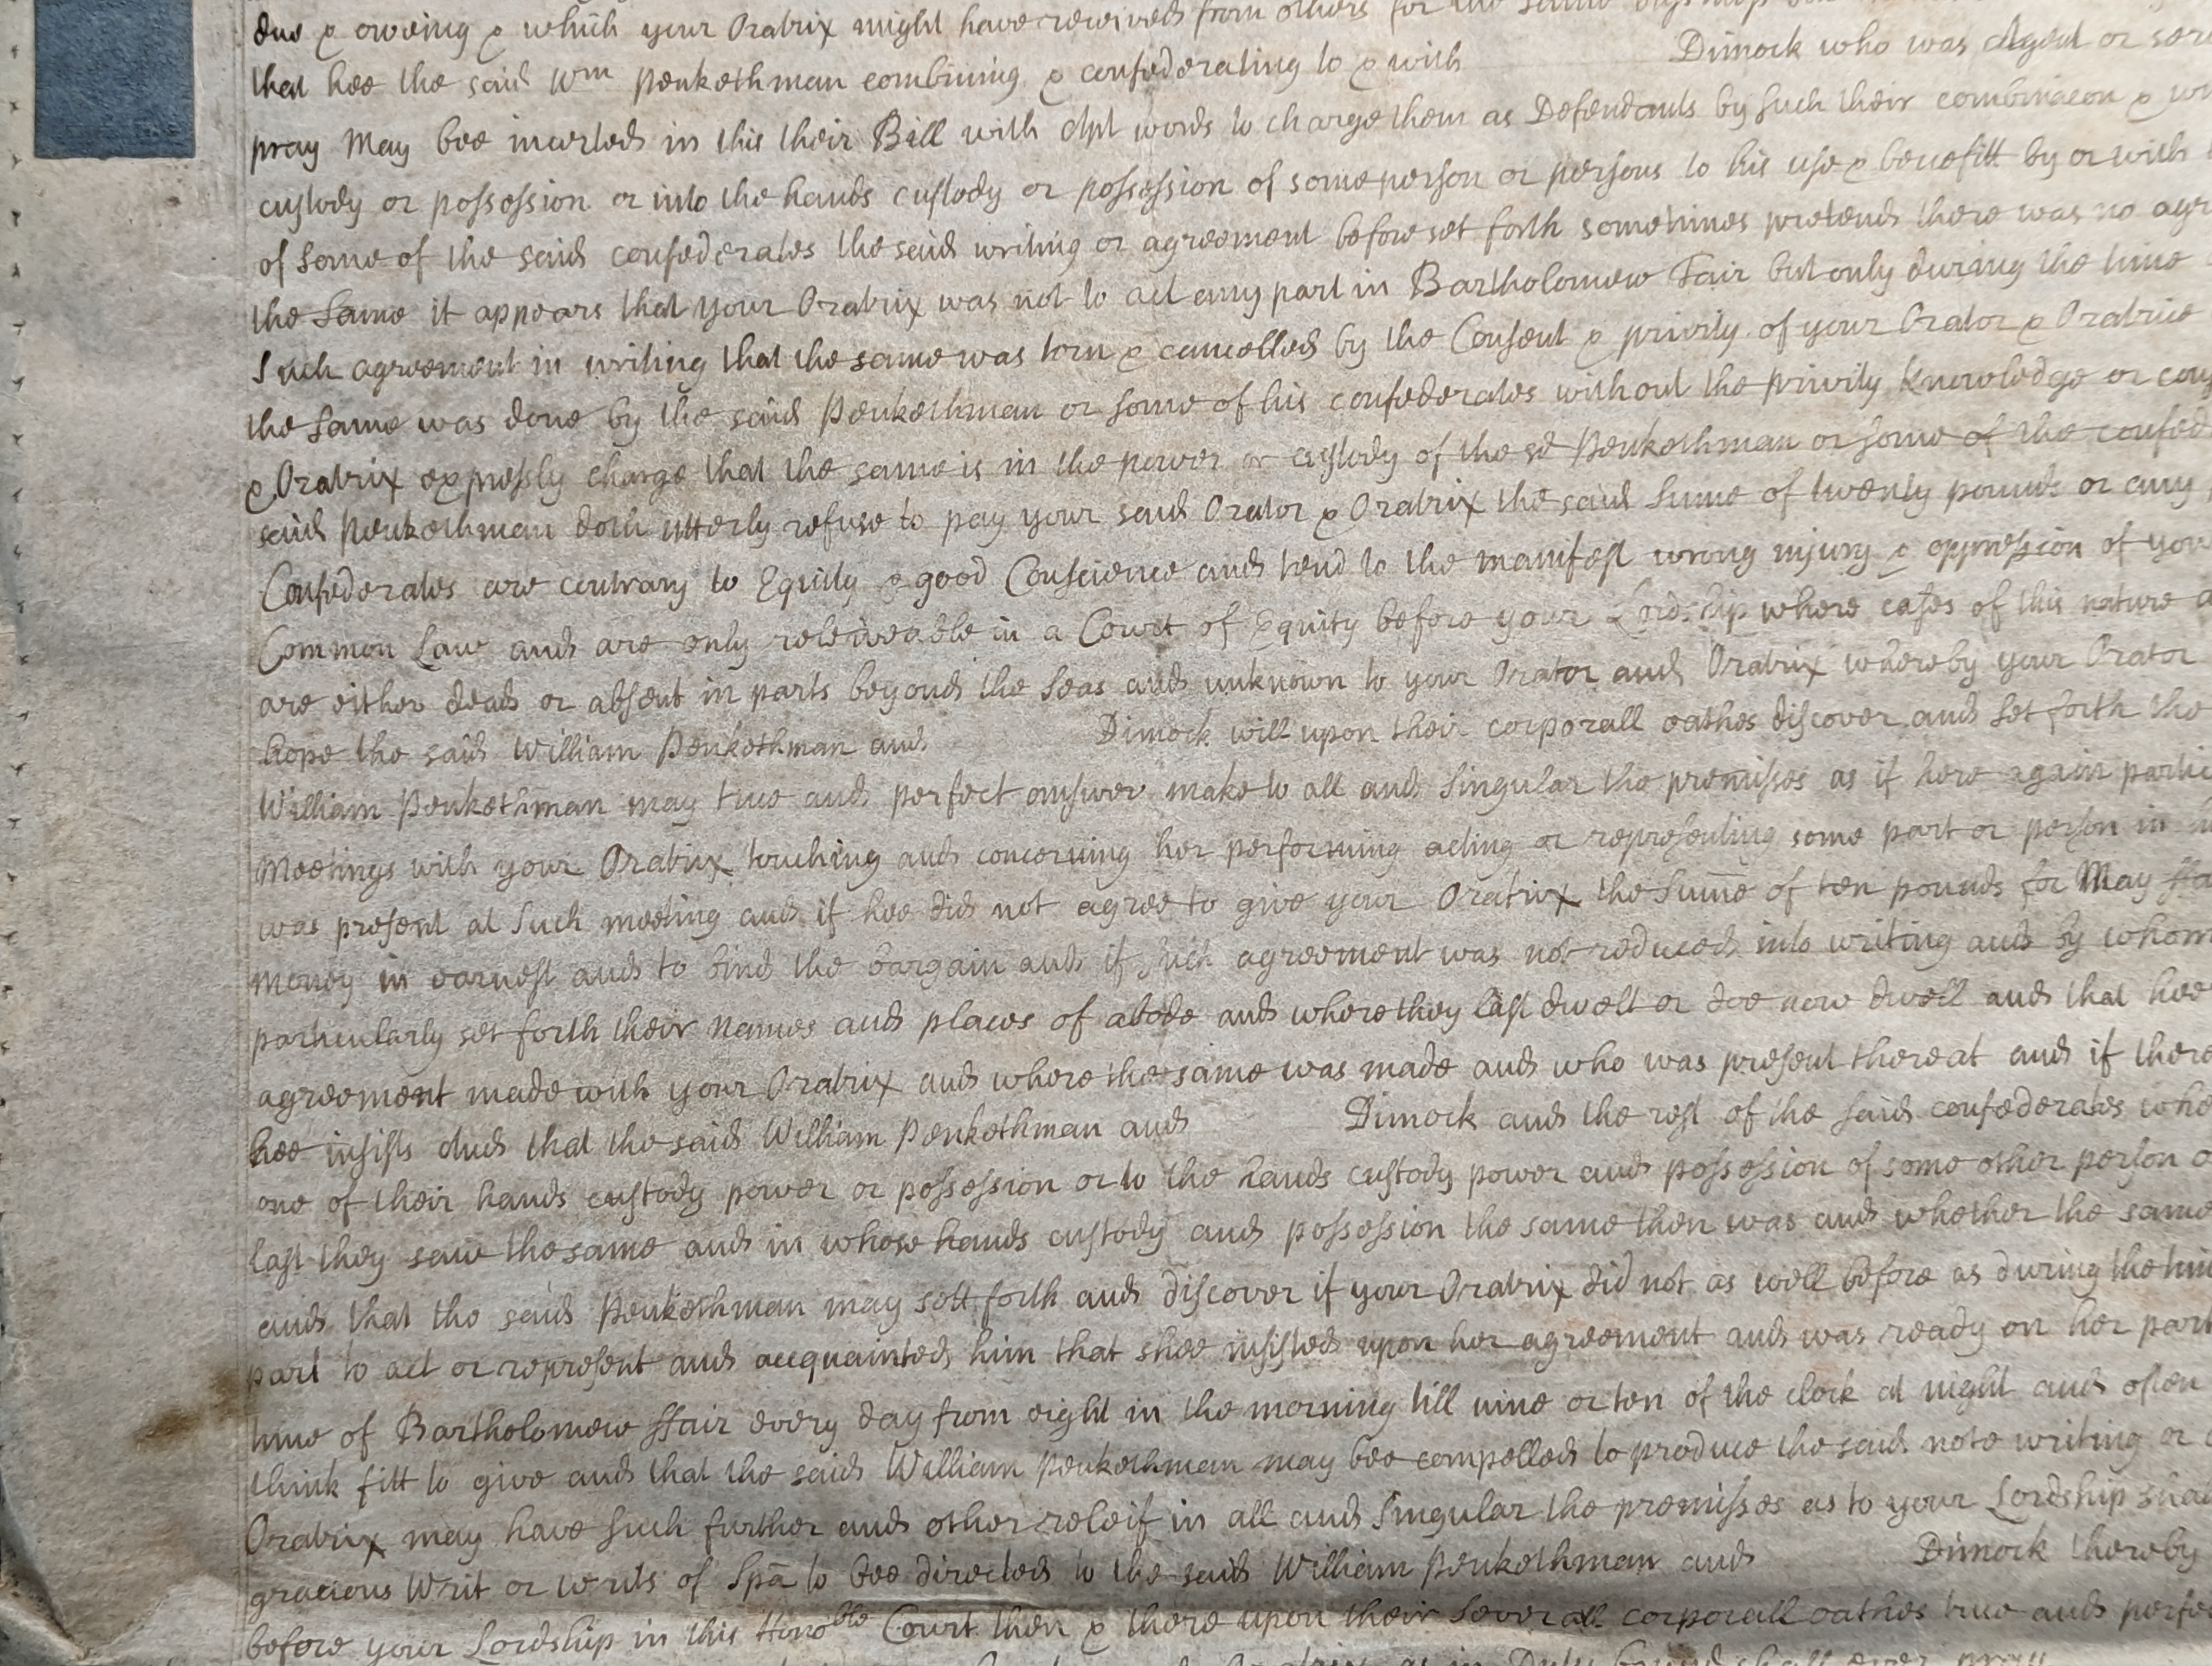 due & oweing & which your Oratrix might have received from others for the same
that hee the said Wm Penkethman combining & confederating to & with Dimock who was Agent or
pray May bee incerted in this their Bill with Apt words to charge them as Defendants by such their combinacon &
custody or possession or into the hands custody or possession of some person or persons to his use & benefitt by or with
of some of the said confederates the said writing or agreement before set forth sometimes pretends there was no
the same it appears that your Oratrix was not to act any part in Bartholomew Fair but only during the time
Such agreement in writing that the same was torn & cancelled by the Consent & privity of your Orator & Oratrix
the same was done by the said Penkethman or some of his confederates without the privity knowledge or
& Oratrix expressly charge that the same is in the power or custody of the sd Penkethman or some of the
said Penkethman doth utterly refuse to pay your said Orator & Oratrix the said Sume of twenty pounds or any
Confederates are contrary to Equity & good Conscience and tend to the manifest wrong injury & oppression of
Common Law and are only releiveable in a Court of Equity before your Lordship where cases of this nature
are either dead or absent in parts beyond the Seas and unknown to your Orator and Oratrix whereby your Orator
hope the said William Penkethman and Dimock will upon their corporall oathes discover and set forth the
William Penkethman may true and perfect answer make to all and Singular the premisses as if here again
Meetings with your Oratrix touching and concerning her performing acting or representing some part or person in
was present at such meeting and if hee did not agree to give your Oratrix the Sume of ten pounds for May
money in earnest and to bind the bargain and if such agreement was not reduced into writing and by whom
particularly set forth their names and places of abode and where they last dwelt or doe now dwell and that hee
agreement made with your Oratrix and where the same was made and who was present thereat and if there
hee insists And that the said William Penkethman and Dimock and the rest of the said confederates
one of their hands custody power or possession or to the hands custody power and possession of some other person
last they saw the same and in whose hands custody and possession the same then was and whether the same
and that the said Penkethman may sett forth and discover if your Oratrix did not as well before as during the
part to act or represent and acquainted him that shee insisted upon her agreement and was ready on her part
time of Bartholomew ffair every day from eight in the morning till nine or ten of the clock at night and often
think fitt to give and that the said William Penkethman may bee compelled to produce the said note writing or
Oratrix may have such further and other releif in all and Singular the premisses as to your Lordship
gracious Writ or writs of Spa to bee directed to the said William Penkethman and Dimock thereby
before your Lordship in this Honoble Court then & there upon their severall corporall oathes true and
as in Duty bound shall ever pray